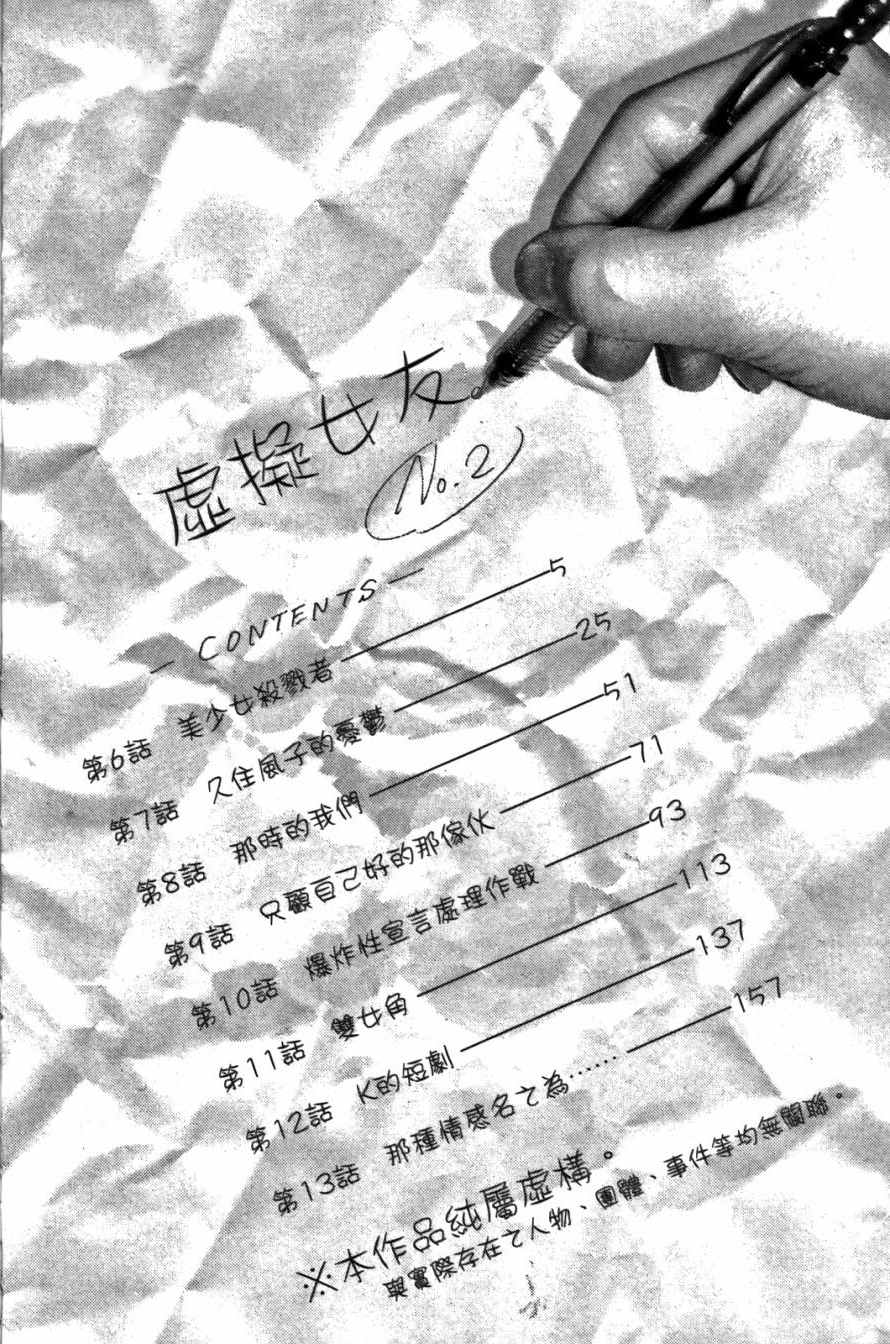 虛擬女友。
No.2
— CONTENTS —
第6話 美少女殺戮者 ——— 5
第7話 久住風子的憂鬱 ——— 25
第8話 那時的我們 ——— 51
第9話 只顧自己好的那傢伙 ——— 71
第10話 爆炸性宣言處理作戰 ——— 93
第11話 雙女角 ——— 113
第12話 K的短劇 ——— 137
第13話 那種情感名之為…… ——— 157
※本作品純屬虛構。
與實際存在之人物、團體、事件等均無關聯。